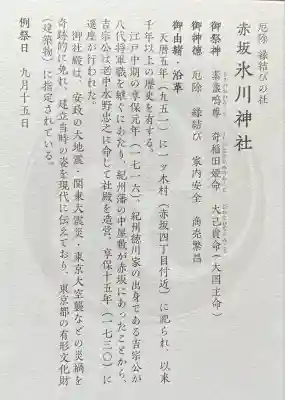 厄除 縁結びの社
赤坂氷川神社
御祭神 素盞嗚尊 奇稲田姫命 大己貴命(大国主命)
御神徳 厄除 縁結び 家内安全 商売繁昌
御由緒・沿革
天暦五年(九五一)に一ッ木村(赤坂四丁目付近)に祀られ、以来
千年以上の歴史を有する。
江戸中期の享保元年(一七一六)、紀州徳川家の出身である吉宗公が
八代将軍職を継ぐにあたり、紀州藩の中屋敷が赤坂にあったことから、
吉宗公は老中水野忠之に命じて社殿を造営、享保十五年(一七三〇)に
遷座が行われた。
御社殿は、安政の大地震・関東大震災・東京大空襲などの災禍を
奇跡的に免れ、建立当時の姿を現代に伝えており、東京都の有形文化財
(建築物)に指定されている。
例祭日 九月十五日